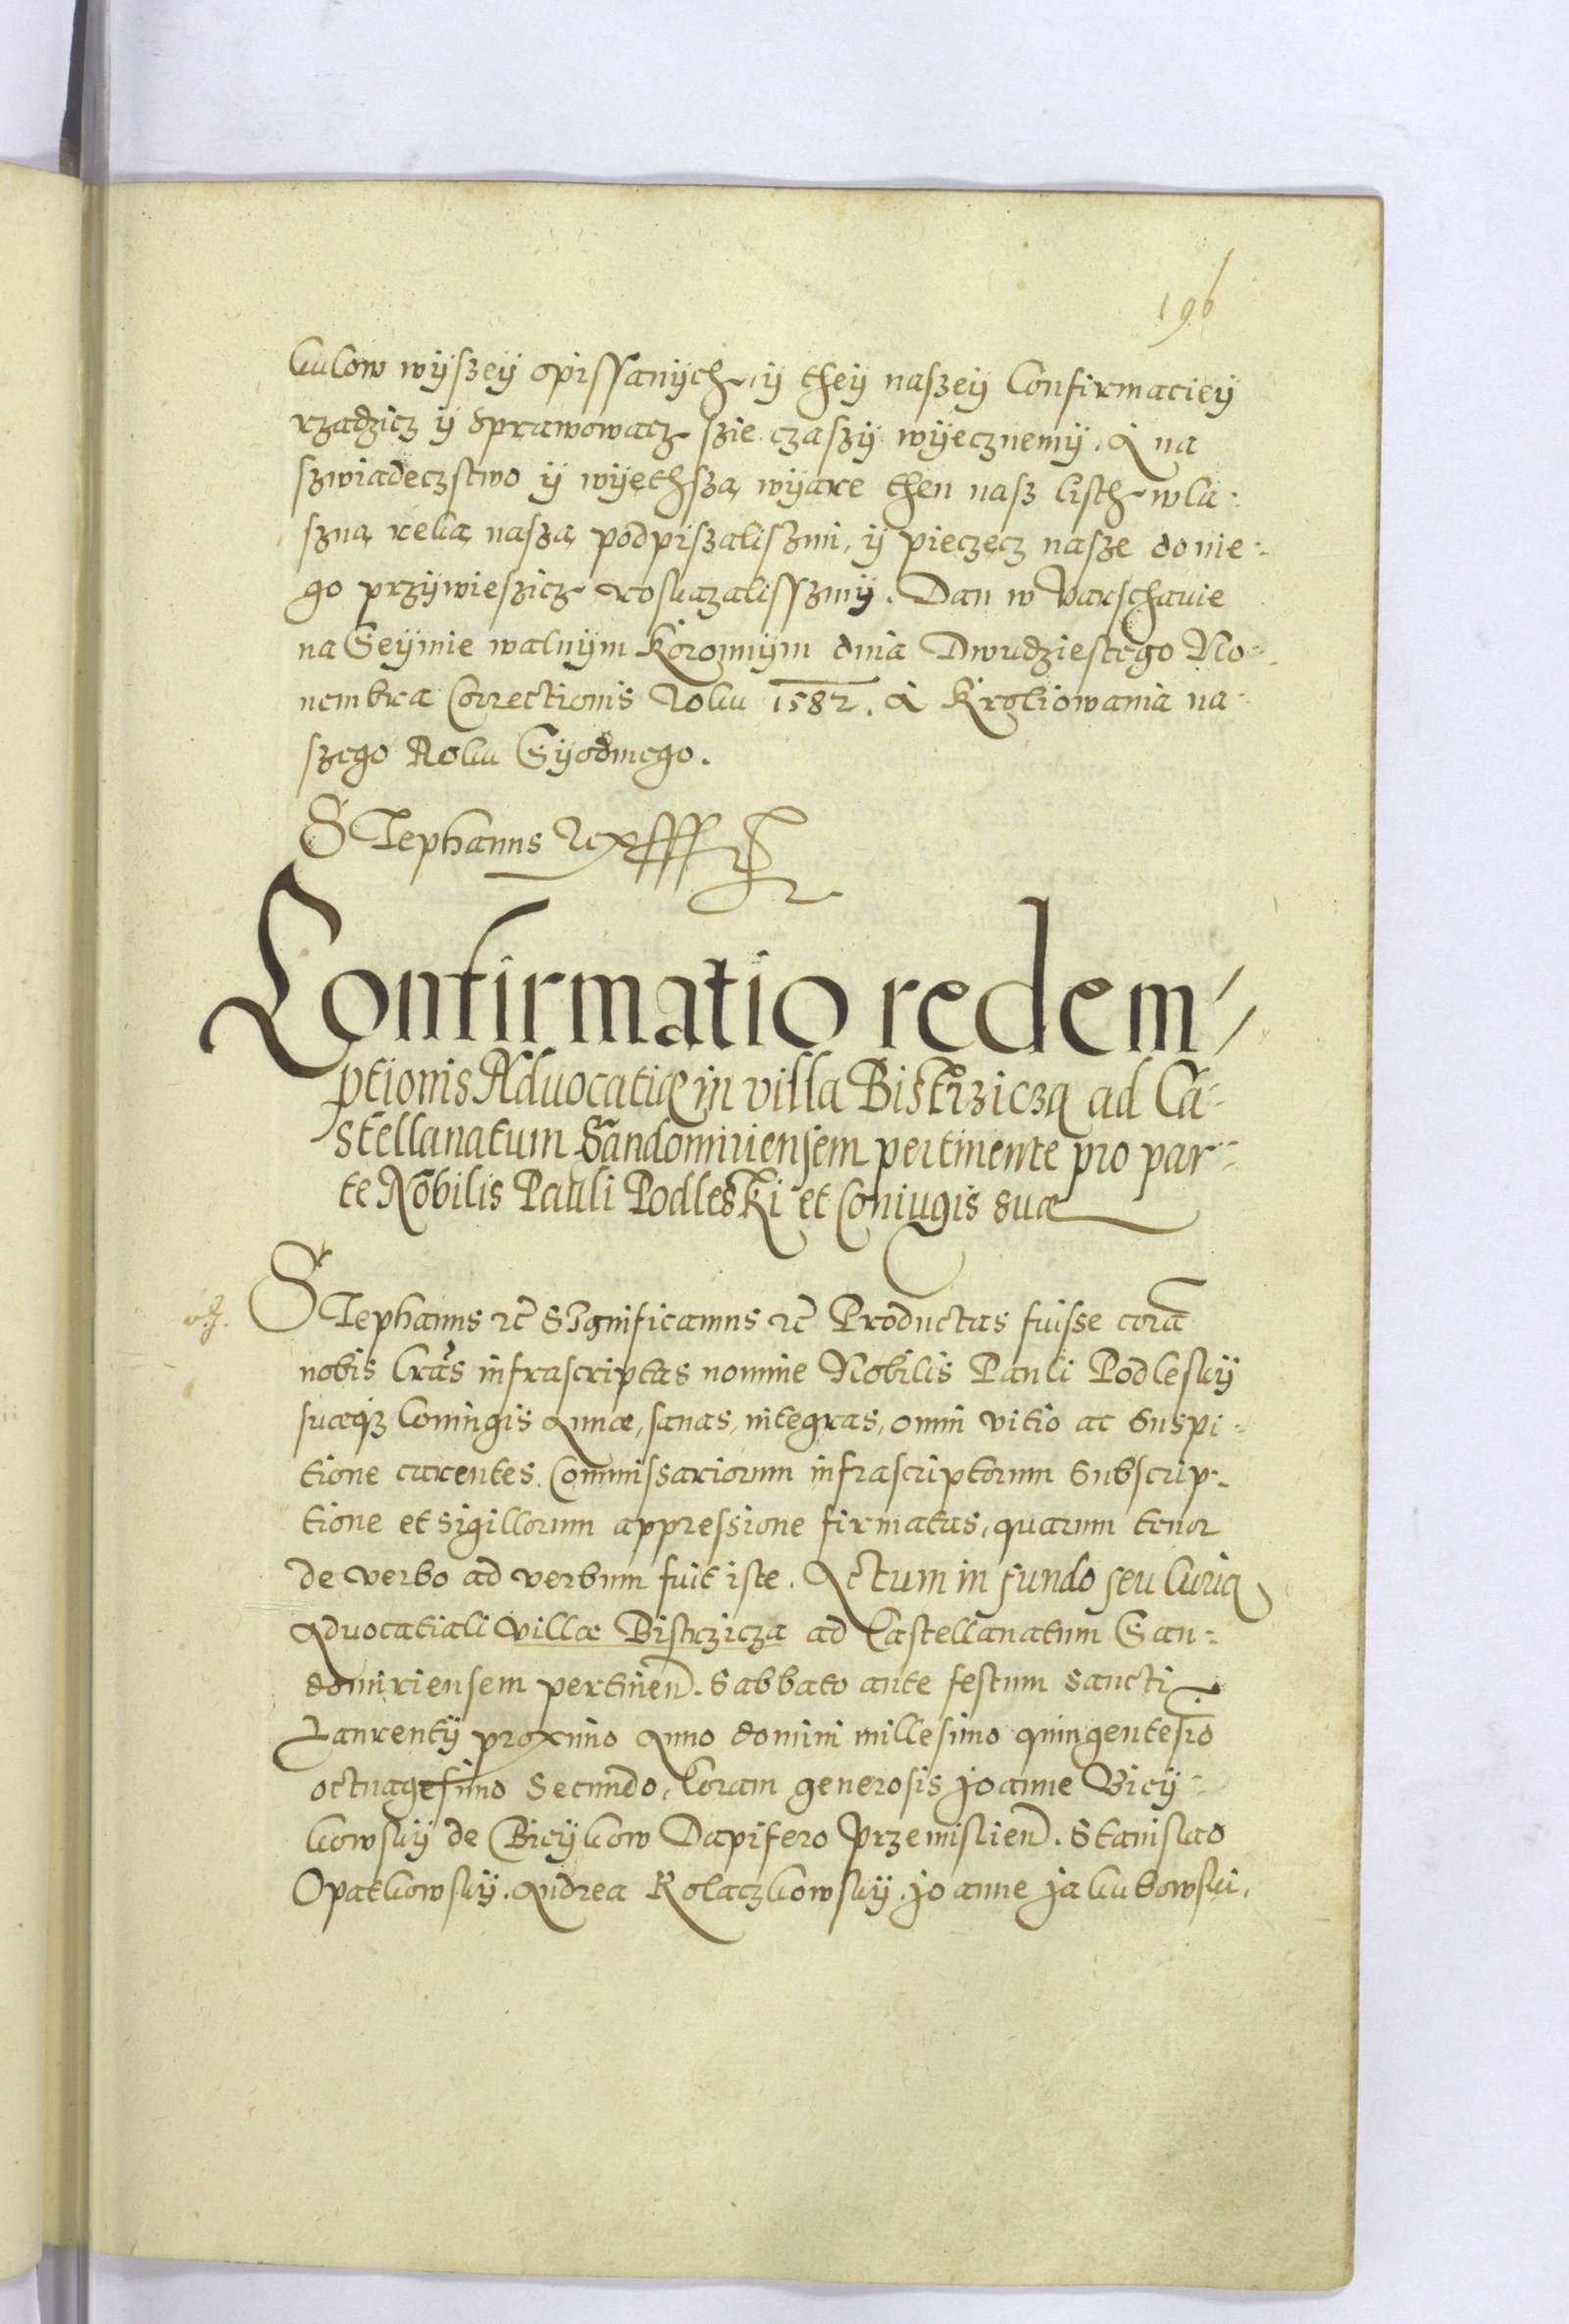 196
kulow wyszey opissanych, y they naszey Confirmaciey
rządzicz y sprawowacz szie czaszy wyecznemy. A na
szwiadecztwo y wyethsza wyare then nasz listh wla-
szną reką naszą podpiszaliszmi, y pieczęcz nasze do nie-
go przywieszicz roskazalisszmy. Dan w Varschauie
na Seymie walnym Koronnym dnia Dwudziestego No-
uembra Correctionis Roku 1582. A Kroliowania na-
szego Roku Syodmego.
Stephanus Rex
Confirmatio redem-
ptionis Aduocatiæ in villa Bistrzicza ad Ca-
stellanatum Sandomiriensem pertinente pro par-
te Nobilis Pauli Podleski et Coniugis suæ
Stephanus etc Significamus etc Productas fuisse corā
nobis lras infrascriptas nomine Nobilis Pauli Podlesky
suæqʒ Coniugis Annæ, sanas, integras, omni vitio ac suspi-
tione carentes. Commissariorum infrascriptorum subscrip-
tione et sigillorum appressione firmatas, quarum tenor
de verbo ad verbum fuit iste. Actum in fundo seu Curia
Aduocatiali villæ Bistrzicza ad Castellanatum San-
domiriensem pertinen. Sabbato ante festum Sancti
Laurenty proximo Anno domini millesimo quingentesio
octuagesimo Secundo, Coram generosis Joanne Bicy-
kowsky de Bicykow Dapifero Przemislien. Stanislao
Opatkowsky. Andrea Rolaczkowsky. Joanne Jakubowski.